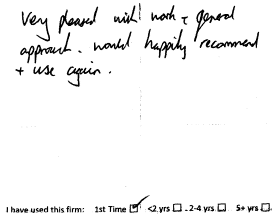 Very pleased with work + general
approach. would happily recommend
+ use again.
I have used this firm: 1st Time ☑ <2 yrs ☐ . 2-4 yrs ☐ 5+ yrs ☐